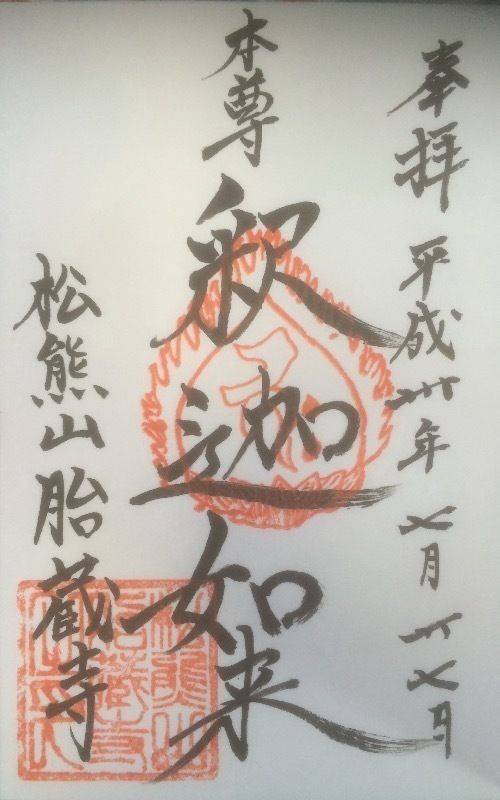 奉拝 平成卅年 七月 廿七日
本尊 釈迦如来
松熊山胎蔵寺